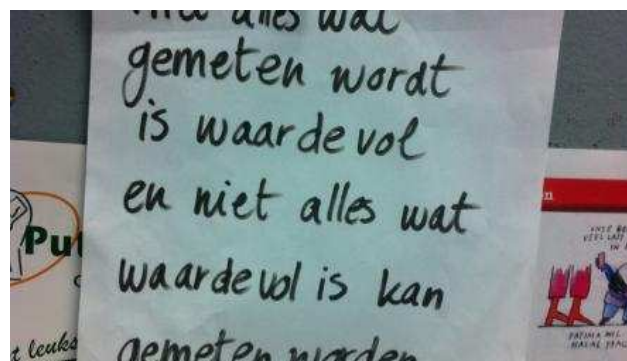 niet alles wat
gemeten wordt
is waardevol
en niet alles wat
waardevol is kan
gemeten worden
Pu
t leuks